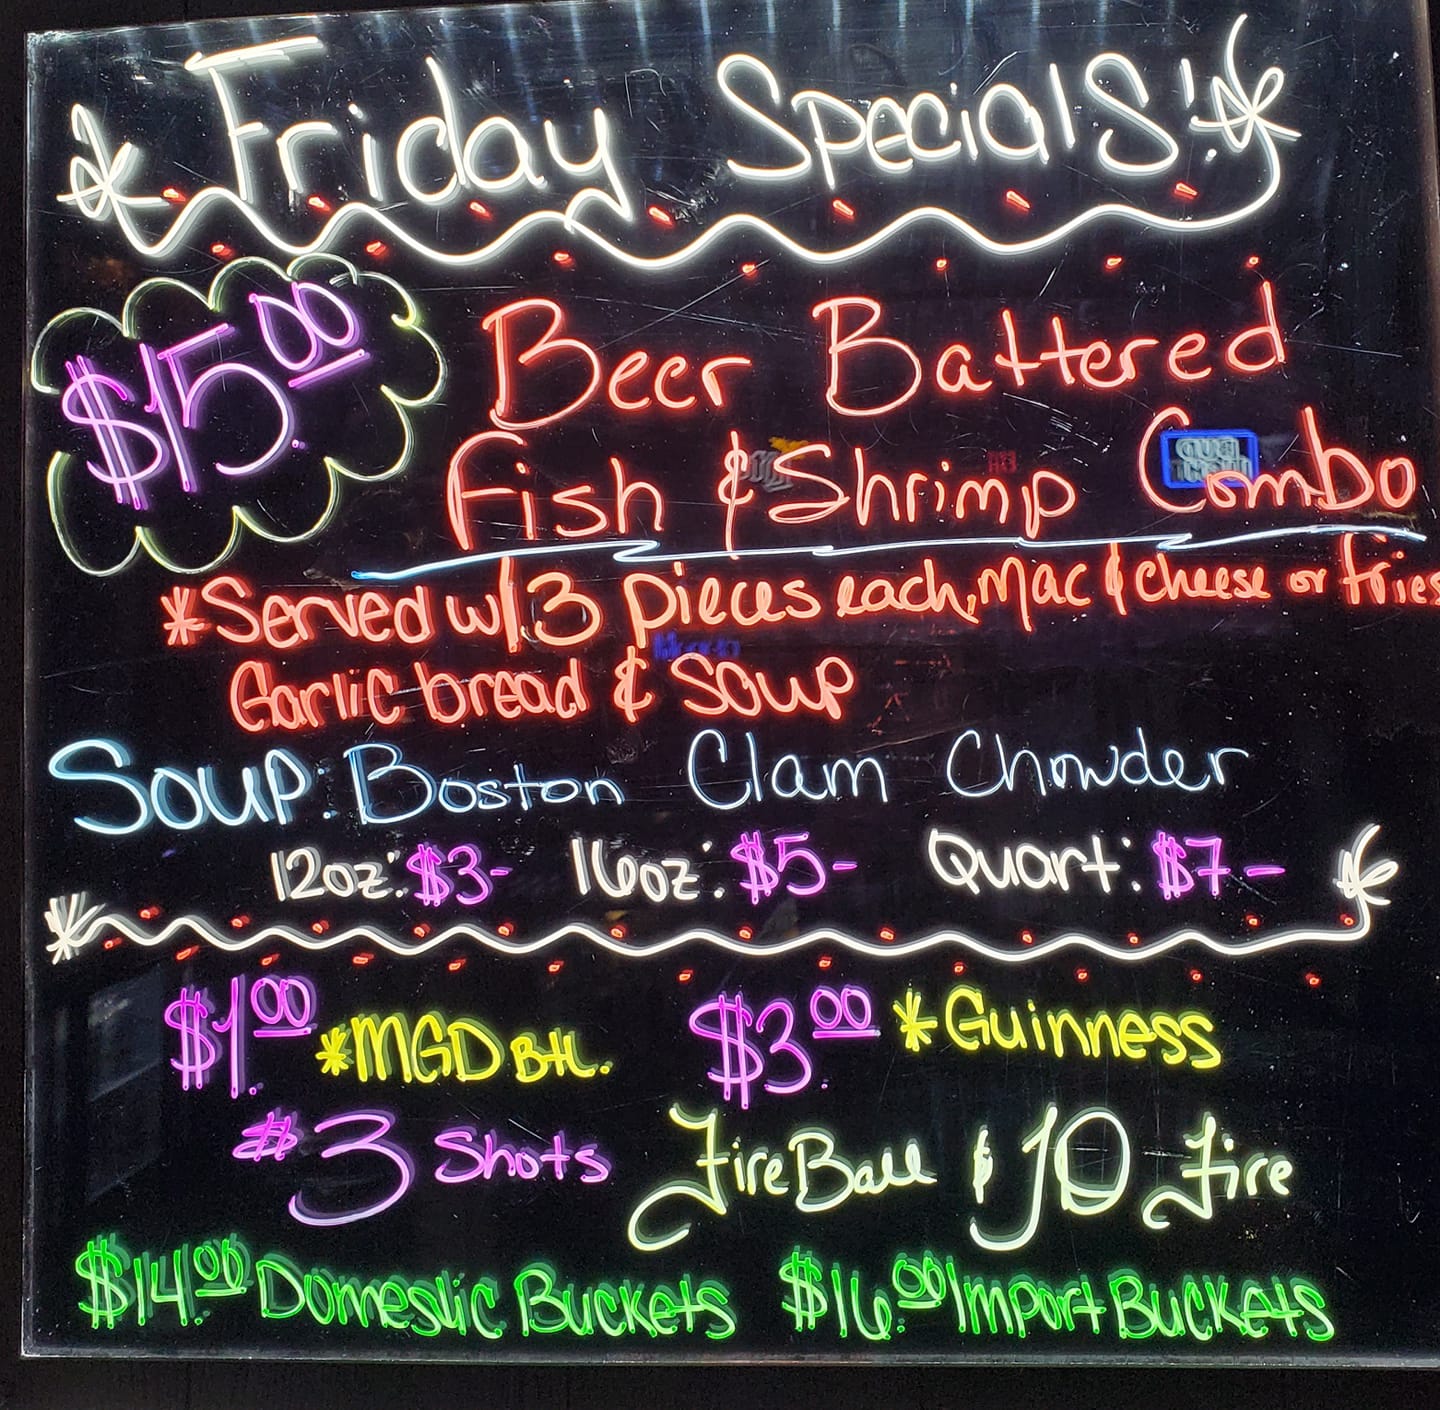 Friday Specials!
$15.00
Beer Battered
Fish & Shrimp Combo
*Served w/ 3 pieces each, Mac & cheese or fries
Garlic bread & Soup
Soup: Boston Clam Chowder
12oz: $3- 16oz: $5- Quart: $7-
$1.00 *MGD Btl. $3.00 *Guinness
$3 Shots FireBall & JD Fire
$14.00 Domestic Buckets $16.00 Import Buckets